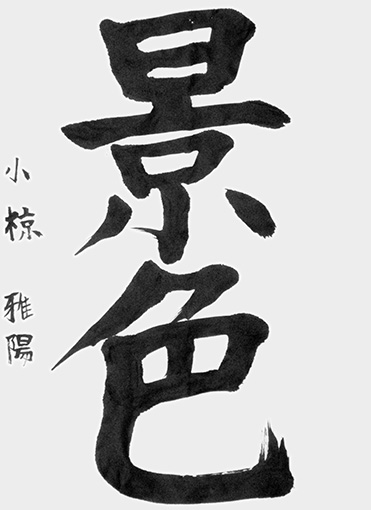 景色
小椋 雅陽